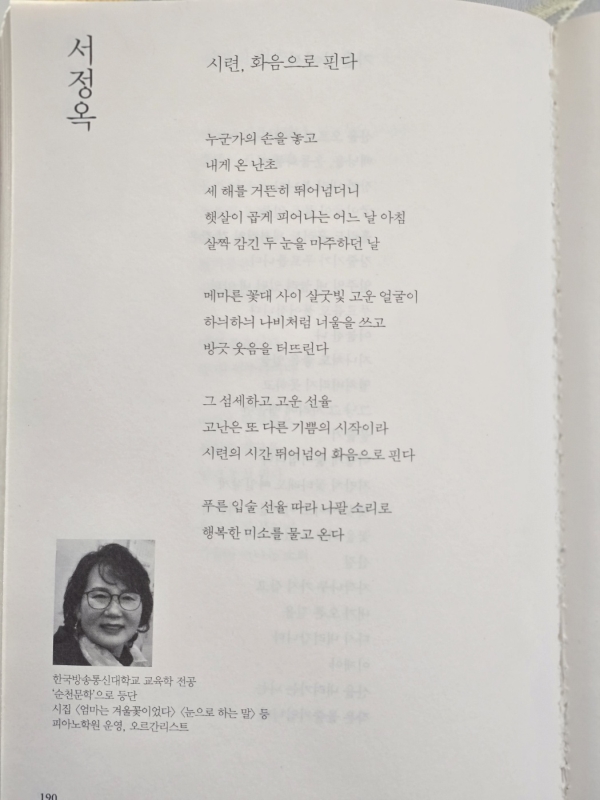 서정옥
시련, 화음으로 핀다
누군가의 손을 놓고
내게 온 난초
세 해를 거뜬히 뛰어넘더니
햇살이 곱게 피어나는 어느 날 아침
살짝 감긴 두 눈을 마주하던 날
메마른 꽃대 사이 살굿빛 고운 얼굴이
하늬하늬 나비처럼 너울을 쓰고
방긋 웃음을 터뜨린다
그 섬세하고 고운 선율
고난은 또 다른 기쁨의 시작이라
시련의 시간 뛰어넘어 화음으로 핀다
푸른 입술 선율 따라 나팔 소리로
행복한 미소를 물고 온다
한국방송통신대학교 교육학 전공
‘순천문학’으로 등단
시집 〈엄마는 겨울꽃이었다〉 〈눈으로 하는 말〉 등
피아노학원 운영, 오르간리스트
190